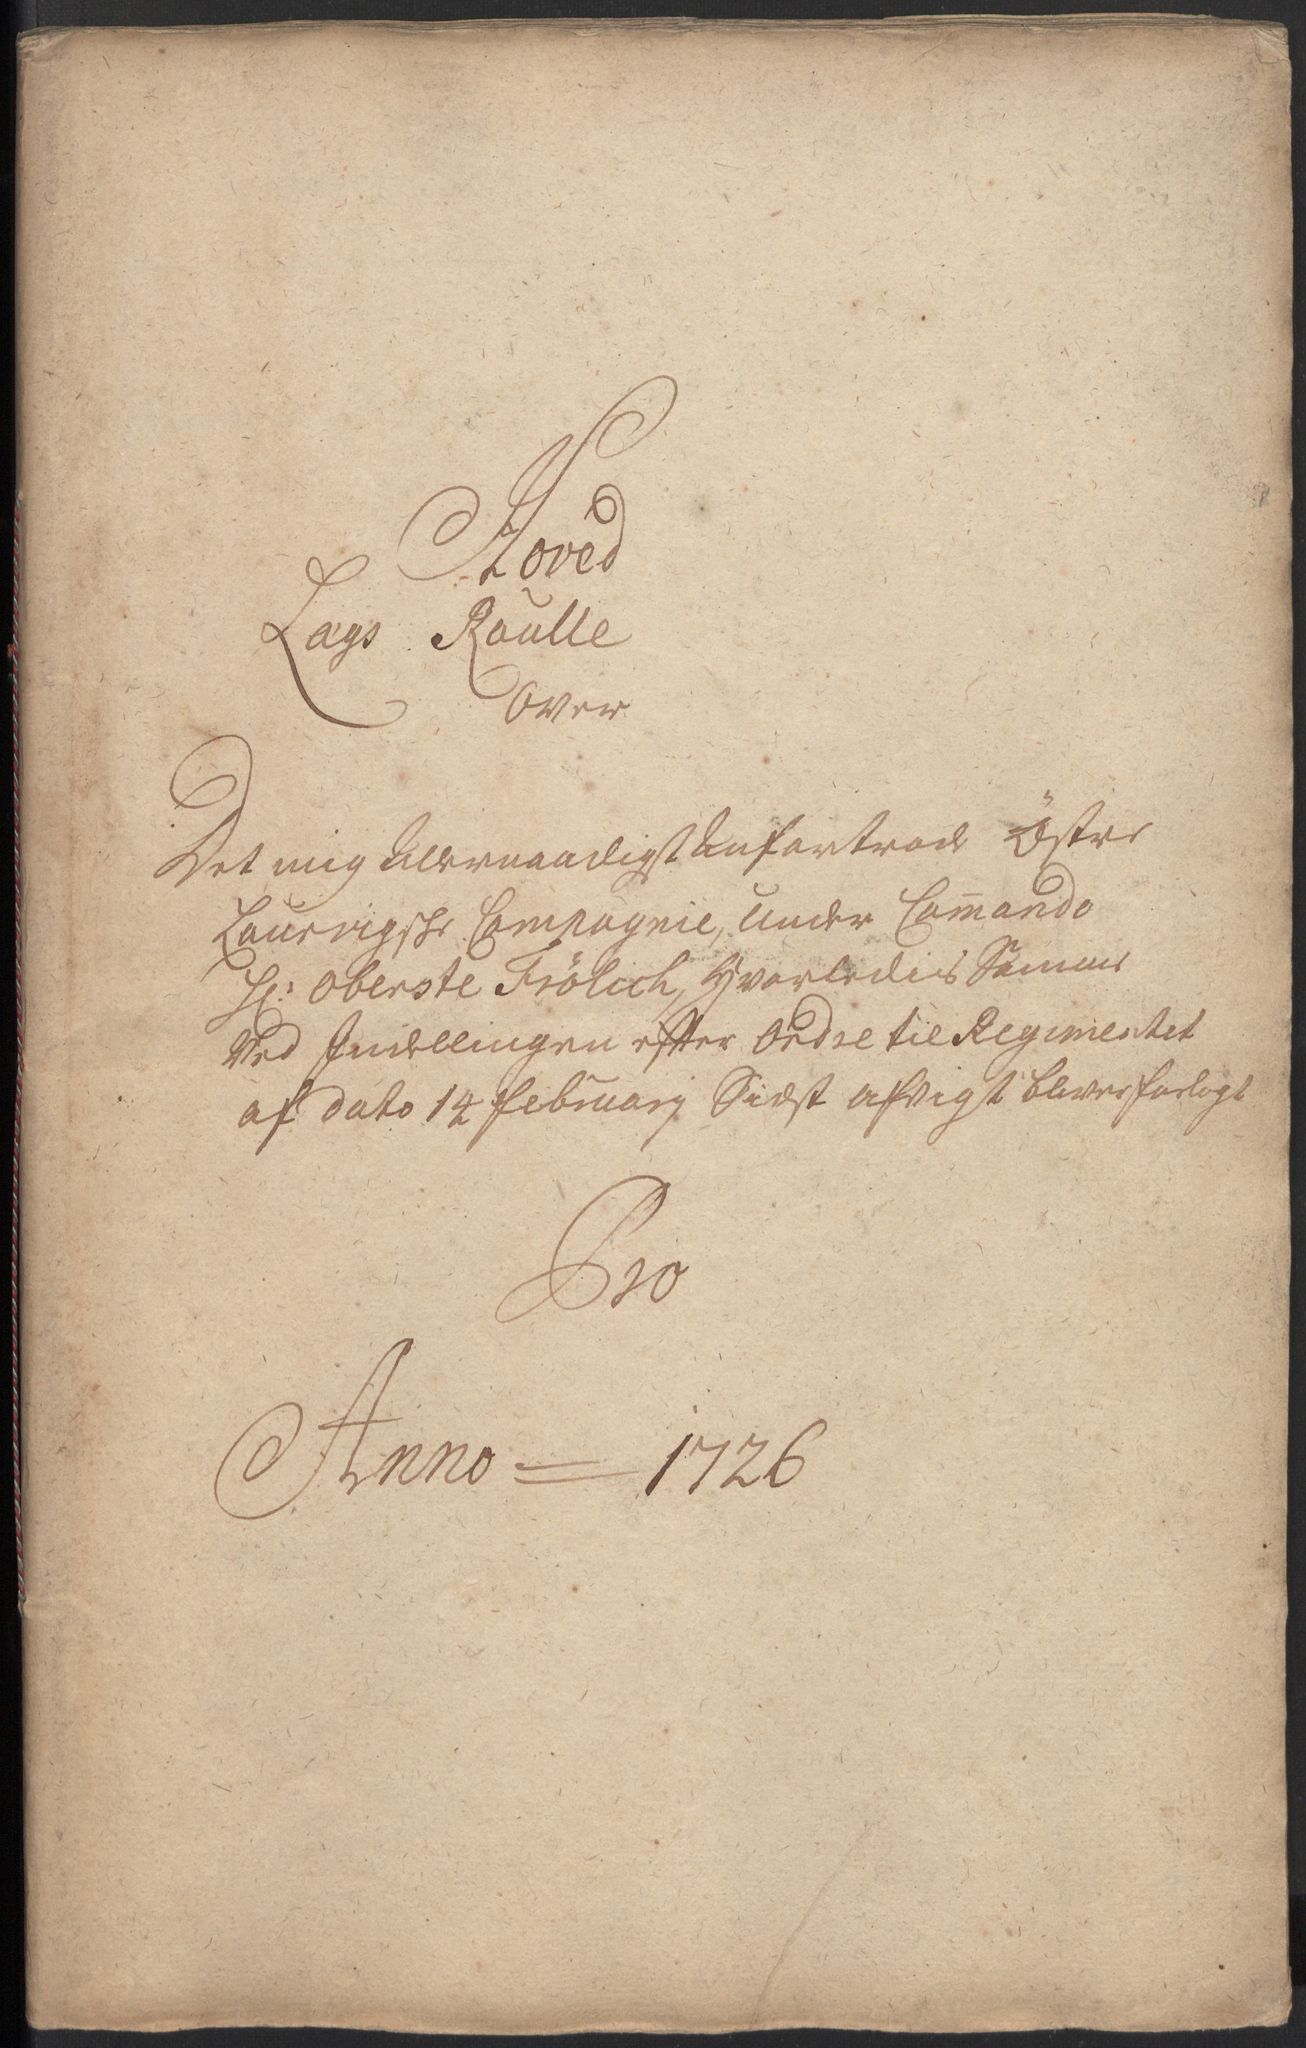 Hoved
Lægs Roulle
Over
Det mig allernaadigst anfortroede Östre
Laurvigske Compagnie, under Commando
Hr: Oberste Frölich, Hvorledis Samme
Ved Indellingen effter Ordre til Regimentet
af dato 14 februarij Sidst afvigt blever forlagt
Pro
Anno = 1726